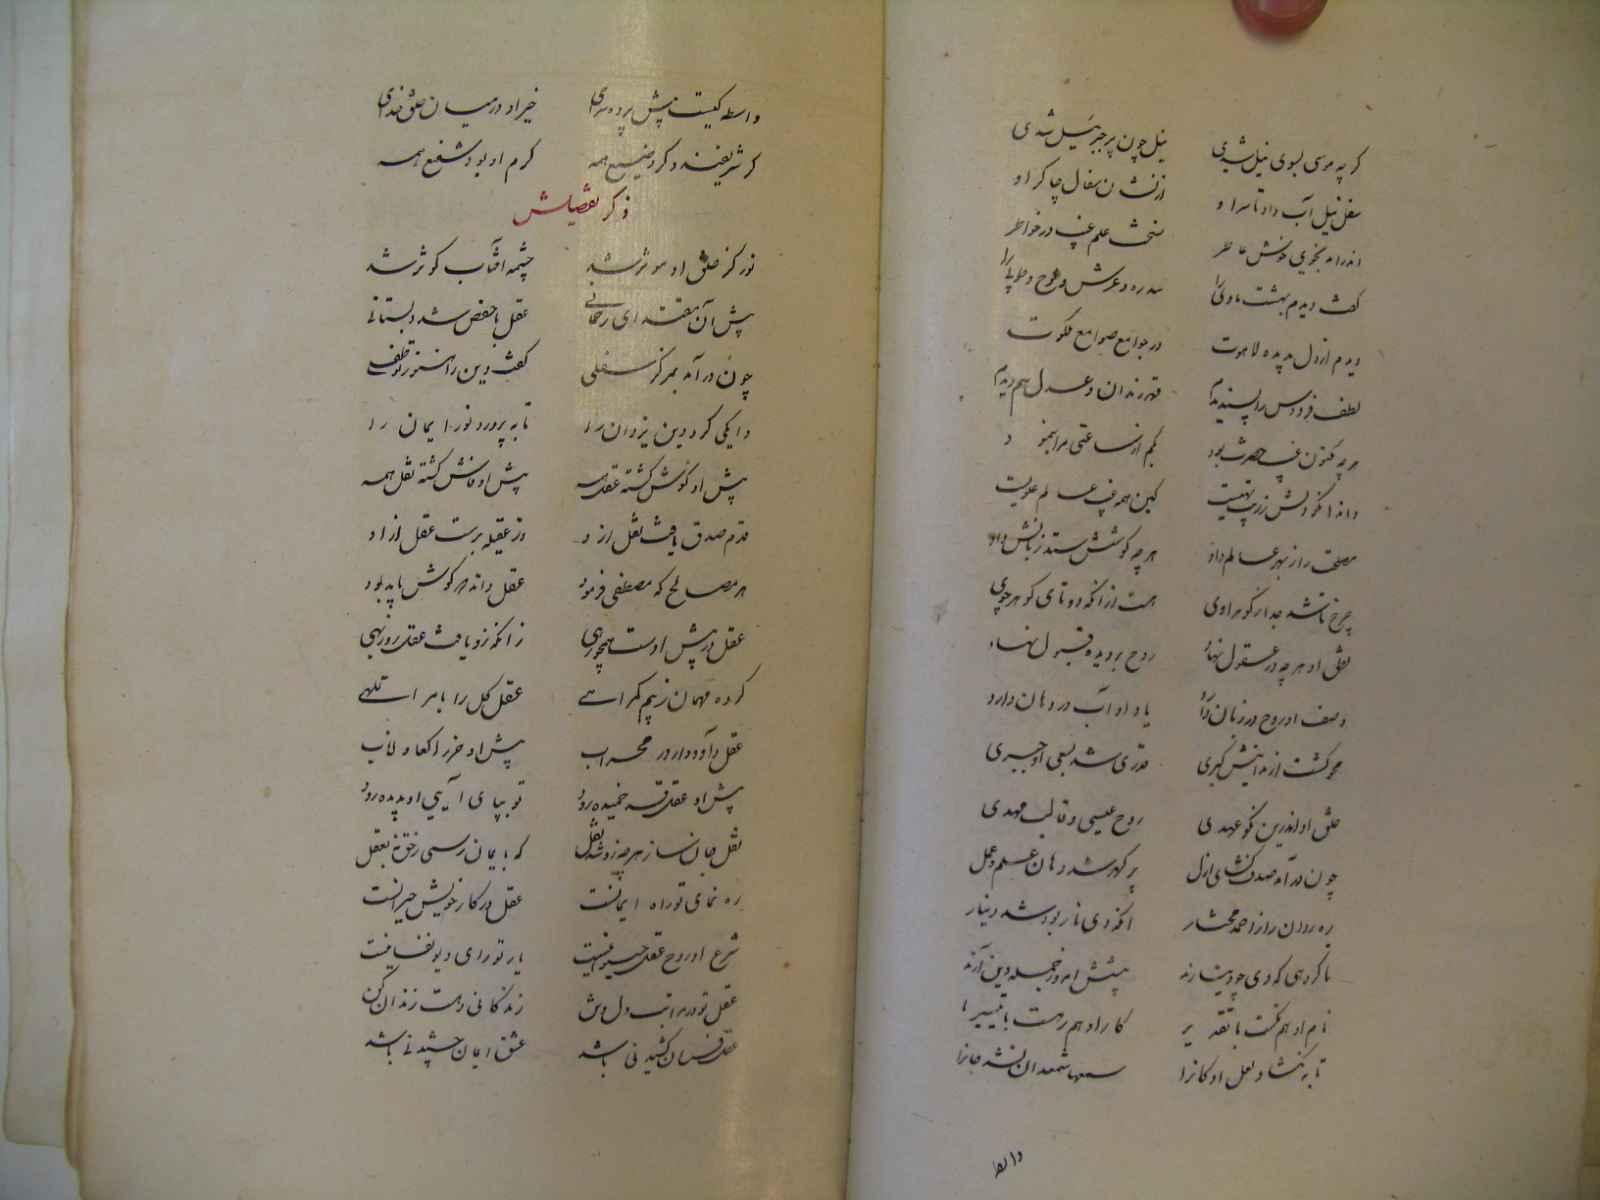 گرچه موسی بسوی نیل شدی نیل چون پر جبرئیل شدی
سفل نیل آب داد تا سرا و از نشان سفال چاکر او
اندرآمد بخوی خوش عاطر سخت علم غیب در خواطر
گفت دیدم بهشت ماوی را سدره و عرش و لوح و طوبی را
دیدم از دل بدیده لاهوت در جوامع صوامع ملکوت
لطف فردوس را پسندیدم قهر زندان و عدل هم دیدم
هرچه مکنون غیب حضرت بود بکم از ساعتی مرا بنمود
داند آنکو دلش زرتب تهیست کین همه غیب عالم علویست
مصلحت را ز بهر عالم داد هرچه گوشش ستد زبانش داد
چرخ تا شد جدا ز گوهر اوی هست از آنکه دوتای گوهر جوی
نطق او هرچه در عقول نهاد روح بر دیده قبول نهاد
وصف او روح در زبان دارد یاد او آب در دهان دارد
محو گشت از بدایتش گبری قدری شد بسعی او جبری
خلق او اندرین نکو عهدی روح عیسی و قالب مهدی
چون در آمد صدف گشای ازل پر گهر شد دهان علم و عمل
ره روان را ز احمد مختار آنکه دی نار بود شد دینار
تا گروهی که دی چو دینارند پیشش امروز جمله دین آرند
نام او هم تکست با تقدیر کار او هم رهست با تیسیر
تا به بگشاد لعل او کانرا سمعها شمعدان شد جانرا
واسطه
واسطه کیست پیش پرده سرای خیر او در میان خلق خدای
گر شریفند و گر وضیع همه کرم او بود شفیع همه
ذکر تفضیلش
نور کز خلق او موثر شد چشمه آفتاب کوثر شد
پیش آن هفته‌ای رحمانی عقل با حفص شد دبستانی
چون در آمد بمرکز سفلی گفت دین را
دایکی کرد دین یزدان را تا بپرورد نور ایمان را
پیش او گوش گشته عقل همه پیش او فاش گشته نقل همه
قدم صدق یافت نقل از و وز عقیله برست عقل از او
هر مصالح که مصطفی فرمود عقل داند که گوش باید بود
عقل در پیش اوست همچو رهی زانکه زو یافت عقل روزبهی
کرده مهمان ز بیم گمراهی عقل کل را بامر
عقل داود دار در محراب پیش او خر راکعا و اناب
پیش او عقل قد خمیده رود تو بپای آیی او بدیده رود
نقل جان ساز هرچه زو شد نقل که بایمان رسی زحق نه بعقل
ره نمای تو راه ایمانست عقل در کار خویش حیرانست
شرع او روح عقل حیوانیست یار تو رای دیو نفسانیست
عقل تو در مراتب دل و تن زندگانی دهست زندان کن
عقل فرمان کشیدنی باشد عشق ایمان چشیدنی باشد